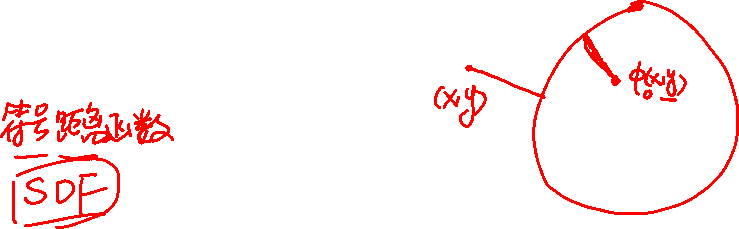 符号距离函数
SDF
(x,y)
φ(x,y)